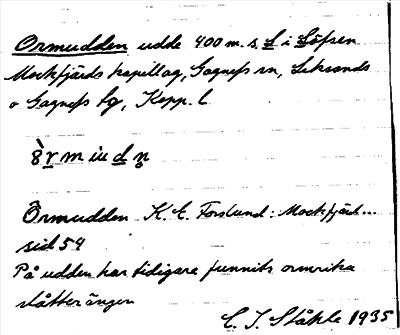 Ormudden udde 400 m. s. L i Löfsen
Mockfjärds kapellag, Gagnefs sn, Leksands
o Gagnefs tg, Kopp. l.
Örmudden K. E. Forslund: Mockfjärd...
sid 59
På udden har tidigare funnits ormrika
slåtterängar
C. I. Ståhle 1935